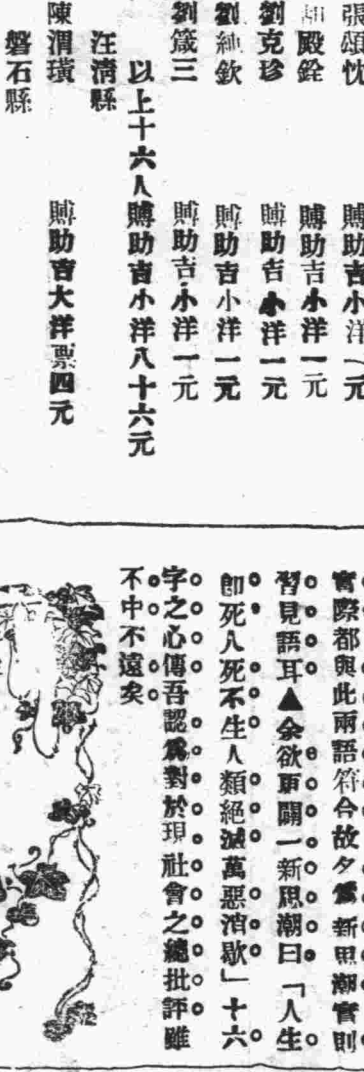 張頌忱 賻助吉小洋一元
殿銓 賻助吉小洋一元
劉克珍 賻助吉小洋一元
劉純欽 賻助吉小洋一元
劉箴三 賻助吉小洋一元
以上十六人賻助吉小洋八十六元
汪淸縣
陳渭璜 賻助吉大洋票四元
磐石縣
實際都與此兩語符合故夕爲新思潮實則
習見語耳▲余欲更闢一新思潮曰「人生
卽死人死不生人類絕滅萬惡消歇」十六
字之心傳吾認爲對於現社會之總批評雖
不中不遠矣